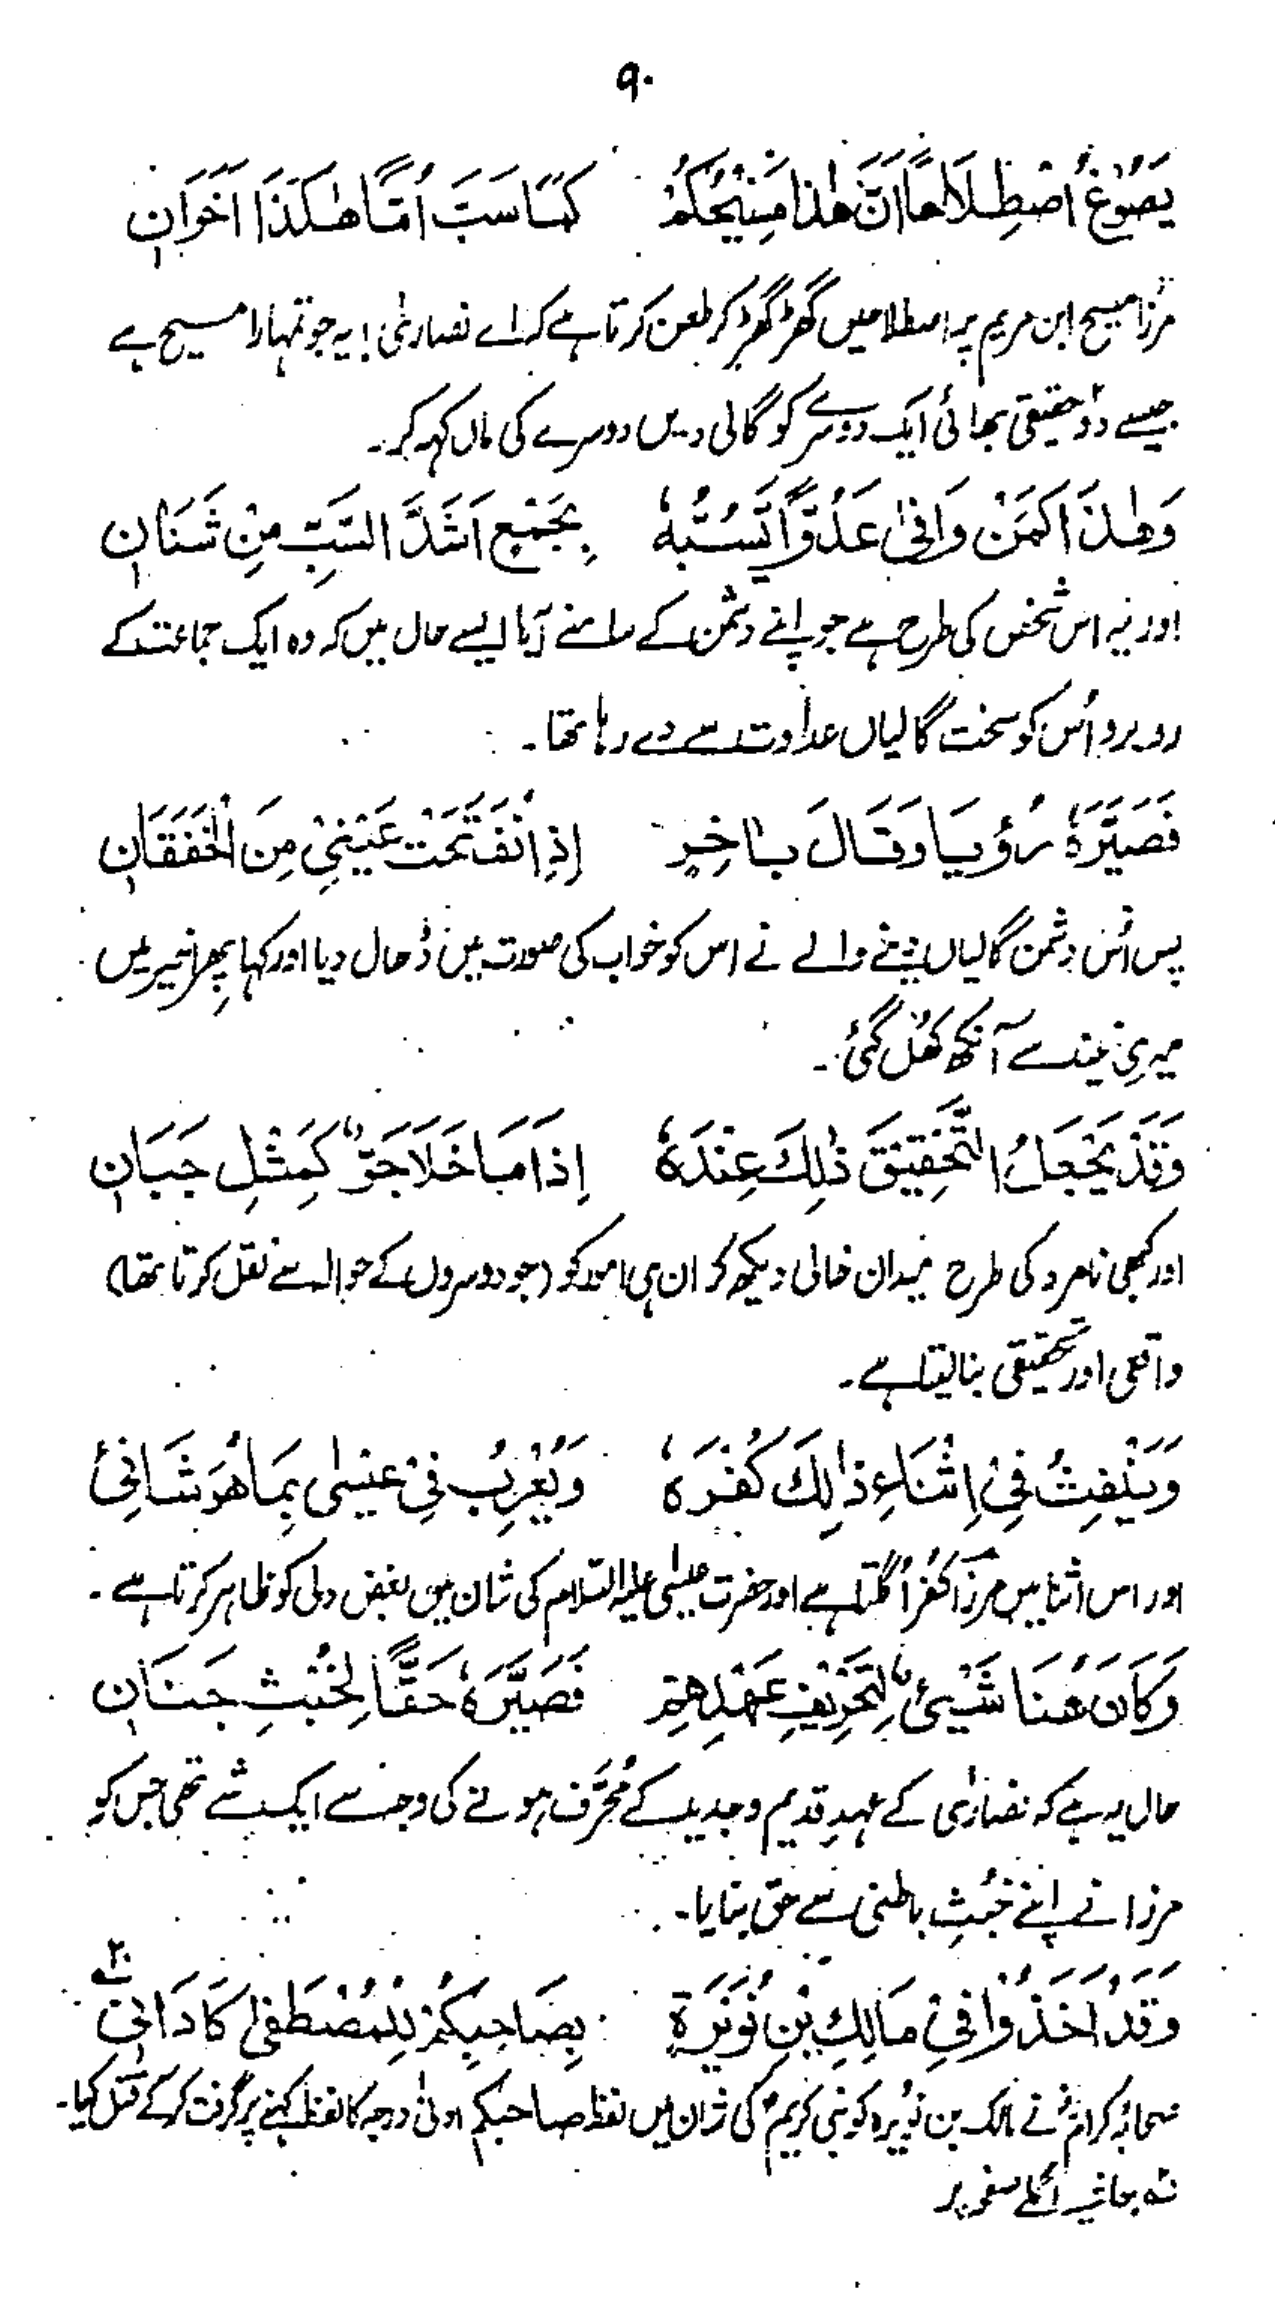 ۹۰
يَصُوْغُ اصْطِلَاحًا اَنَّ هٰذَا مَسِيْحُكُمْ كَمَا سَبَّ اُمًّا هٰكَذَا اَخَوَانِ
مرزا مسیح ابن مریم پر اصطلاحیں گھڑ گھڑ کر طعن کرتا ہے کہ اے نصاریٰ! یہ جو تمہارا مسیح ہے
جیسے دو حقیقی بھائی ایک دوسرے کو گالی دیں دوسرے کی ماں کہہ کر۔
وَهٰذَا كَمَنْ وَافٰى عَدُوًّا يَسُبُّهٗ بِجَمْعٍ اَشَدَّ السَّبِّ مِنْ شَنَاٰنِ
اور یہ اس شخص کی طرح ہے جو اپنے دشمن کے سامنے آیا ایسے حال میں کہ وہ ایک جماعت کے
روبرو اُس کو سخت گالیاں عداوت سے دے رہا تھا۔
فَصَيَّرَهٗ رُؤْيَا وَقَالَ بِاٰخِرٍ اِذِ انْفَتَحَتْ عَيْنِيْ مِنَ الْخَفَقَانِ
پس اُس دشمن گالیاں دینے والے نے اس کو خواب کی صورت میں ڈھال دیا اور کہا پھر اخیر میں
میری نیند سے آنکھ کھُل گئی۔
وَقَدْ يَجْعَلُ التَّحْقِيْقَ ذٰلِكَ عِنْدَهٗ اِذَا مَا خَلَا جَوٌّ كَمِثْلِ جَبَانِ
اور کبھی نامرد کی طرح میدان خالی دیکھ کر ان ہی امور کو (جو دوسروں کے حوالہ سے نقل کرتا تھا)
واقعی اور تحقیقی بنا لیتا ہے۔
وَيَنْفِثُ فِيْ اِثْنَاءِ ذٰلِكَ كُفْرَهٗ وَيُعْرِبُ فِيْ عِيْسٰى بِمَا هُوَ شَانِئُ
اور اس اثنا میں مرزا کفر اُگلتا ہے اور حضرت عیسیٰ علیہ السلام کی شان میں بغض دلی کو ظاہر کرتا ہے۔
وَكَانَ هُنَا شَيْئٌ لِتَحْرِيْفِ عَهْدِهِمْ فَصَيَّرَهٗ حَقًّا لِخُبْثِ جَنَانِ
حال یہ ہے کہ نصاریٰ کے عہدِ قدیم و جدید کے مُحرَّف ہونے کی وجہ سے ایک شے تھی جس کو
مرزا نے اپنے خُبثِ باطنی سے حق بنایا۔
وَقَدْ اَخَذُوْا فِيْ مَالِكِ بْنِ نُوَيْرَةٍ بِصَاحِبِكُمْ لِلْمُصْطَفٰى كَادَانِيْ ۲۰
صحابہ کرامؓ نے مالک بن نویرہ کو نبی کریمؐ کی شان میں لفظ صاحبکم ادنیٰ درجہ کا لفظ کہنے پر گرفت کر کے قتل کیا۔
حاشیہ اگلے صفحہ پر